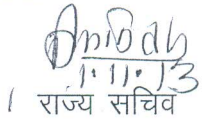 1.11.13
राज्य सचिव